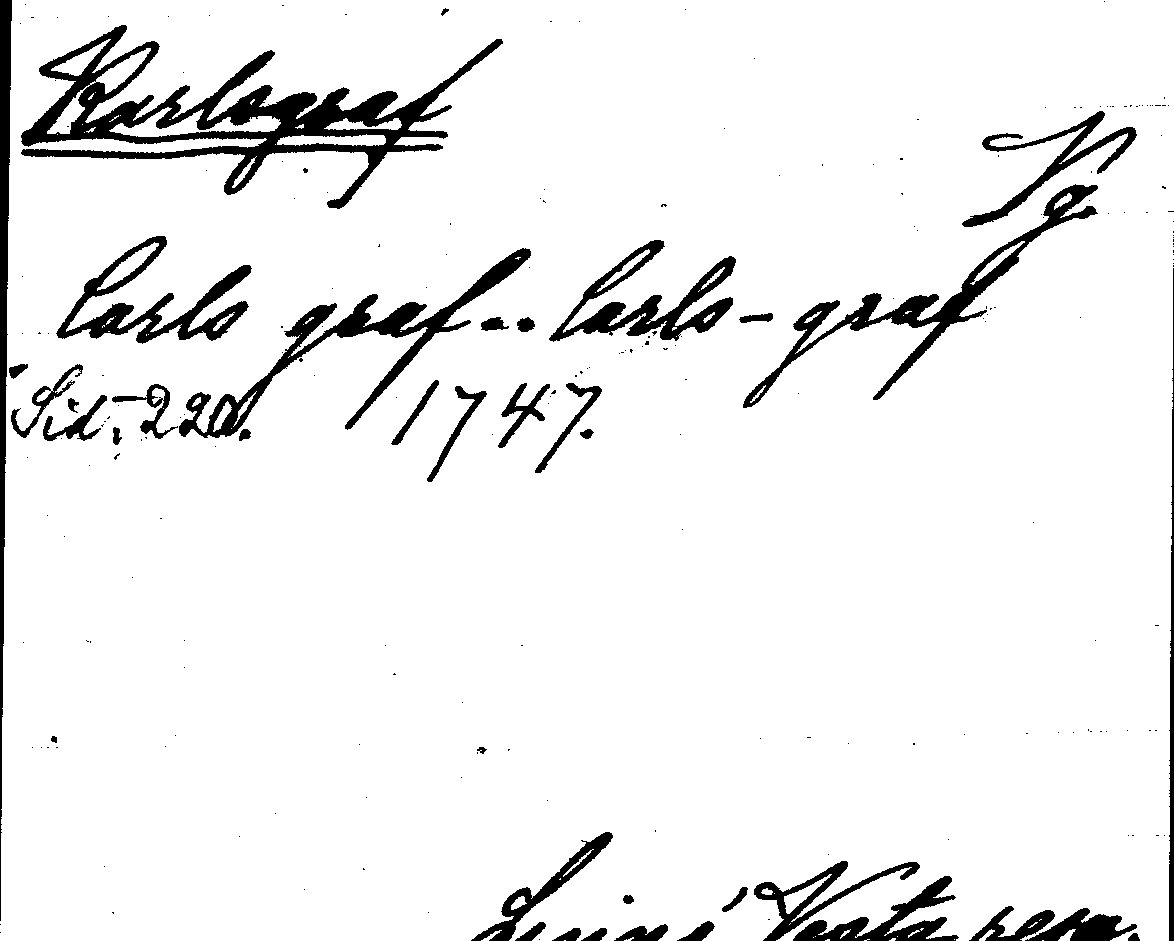 Karlsgraf
Vg.
Carls graf .. Carls-graf
Sid. 220. 1747.
Linné, Västg. resa.